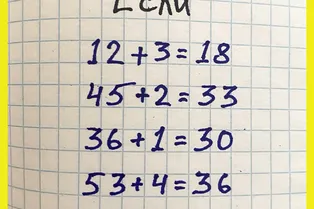 Если
12+3=18
45+2=33
36+1=30
53+4=36